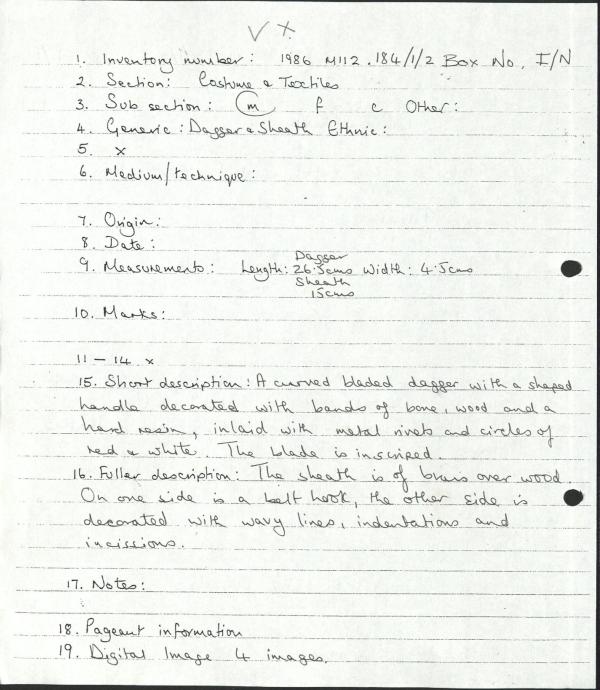 ✓ x.
1. Inventory number: 1986 M112.184/1/2 Box No. I/N
2. Section: Costume & Textiles
3. Sub section: m f c Other:
4. Generic: Dagger & Sheath Ethnic:
5. x
6. Medium/technique:
7. Origin:
8. Date:
Dagger
9. Measurements: Length: 26.5cms Width: 4.5cms
Sheath
15cms
10. Marks:
11 - 14. x
15. Short description: A curved bladed dagger with a shaped
handle decorated with bands of bone, wood and a
hard resin, inlaid with metal rivets and circles of
red & white. The blade is inscriped.
16. Fuller description: The sheath is of brass over wood.
On one side is a belt hook, the other side is
decorated with wavy lines, indentations and
incissions.
17. Notes:
18. Pageant information
19. Digital Image 4 images.